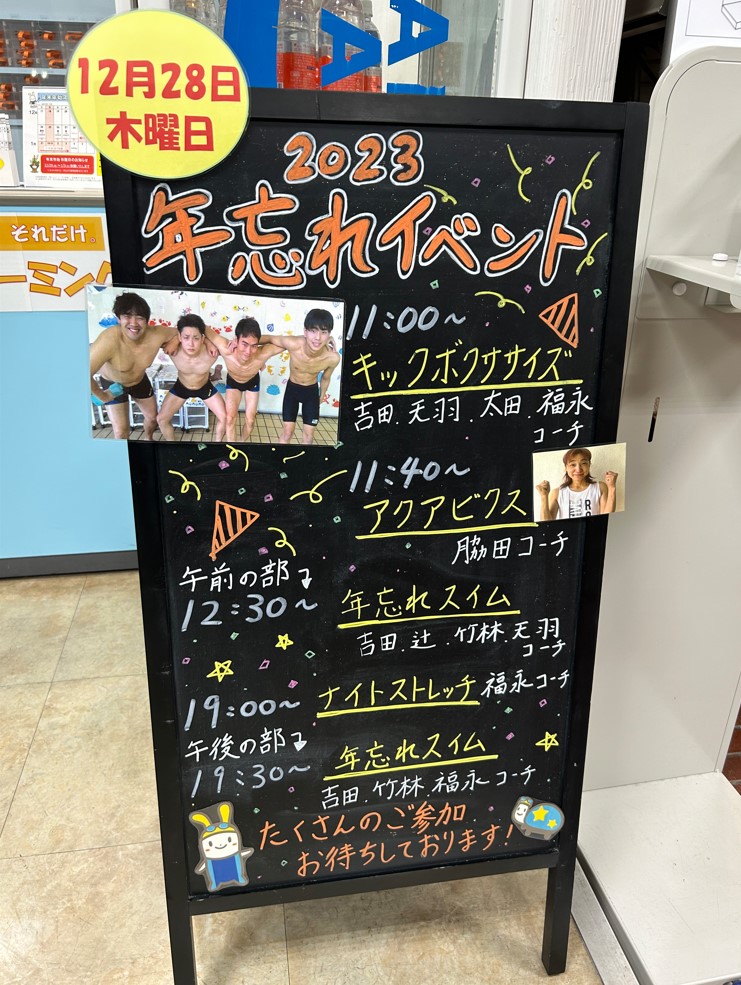 12月28日
木曜日
それだけ。
ーミング
2023
年忘れイベント
11:00~
キックボクササイズ
吉田.天羽.太田.福永
コーチ
11:40~
アクアビクス
脇田コーチ
午前の部
12:30~
年忘れスイム
吉田.辻.竹林.天羽
コーチ
19:00~
ナイトストレッチ 福永コーチ
午後の部
19:30~
年忘れスイム
吉田.竹林.福永コーチ
たくさんのご参加
お待ちしております!